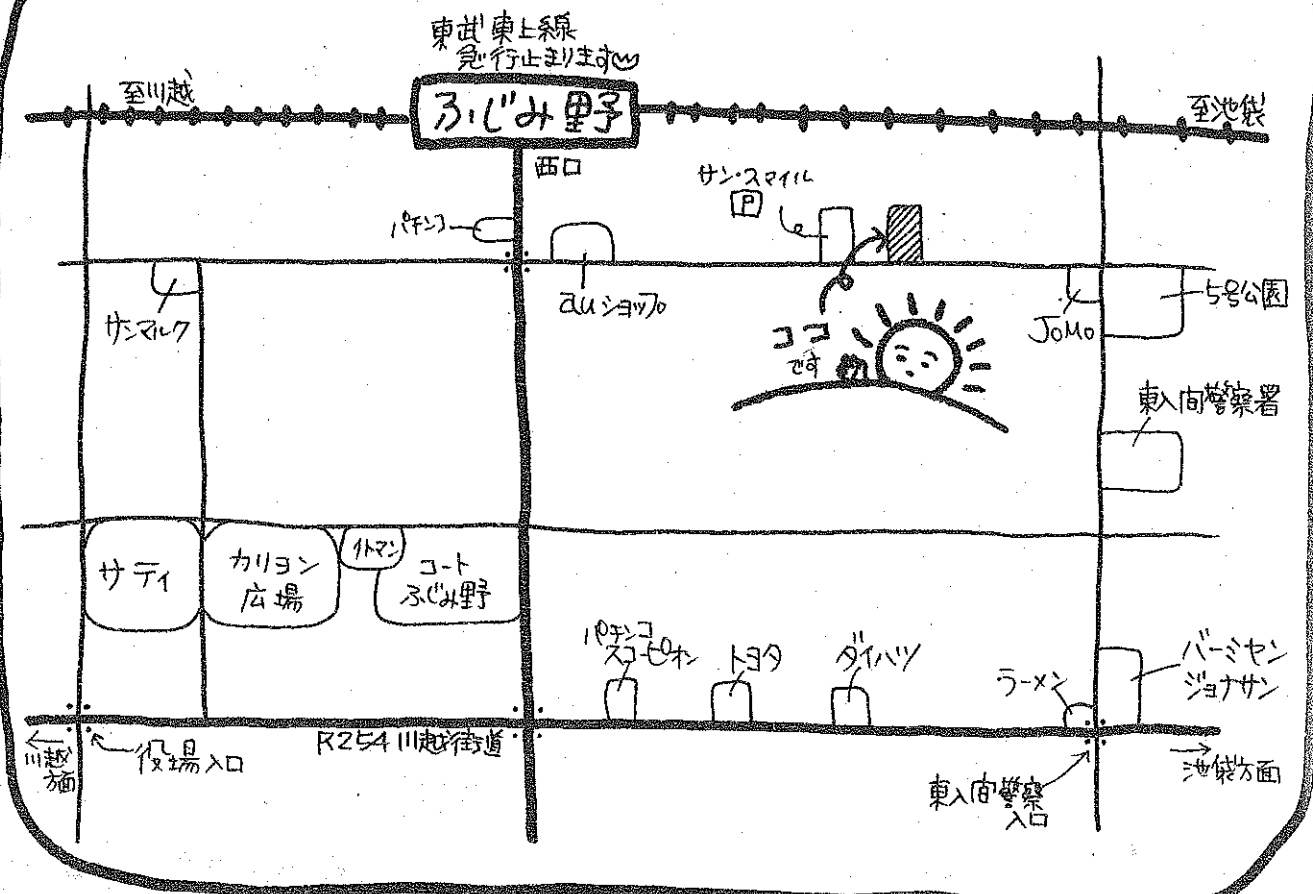 東武東上線
急行止まります
至川越
ふじみ野
至池袋
西口
サン・スマイル
P
パチンコ
auショップ
サンマルク
ココ
です
JOMO
5号公園
東入間警察署
サティ
カリヨン
広場
イトマン
コート
ふじみ野
パチンコ
スコーピオン
トヨタ
ダイハツ
ラーメン
バーミヤン
ジョナサン
川越
方面
役場入口
R254川越街道
東入間警察
入口
池袋方面